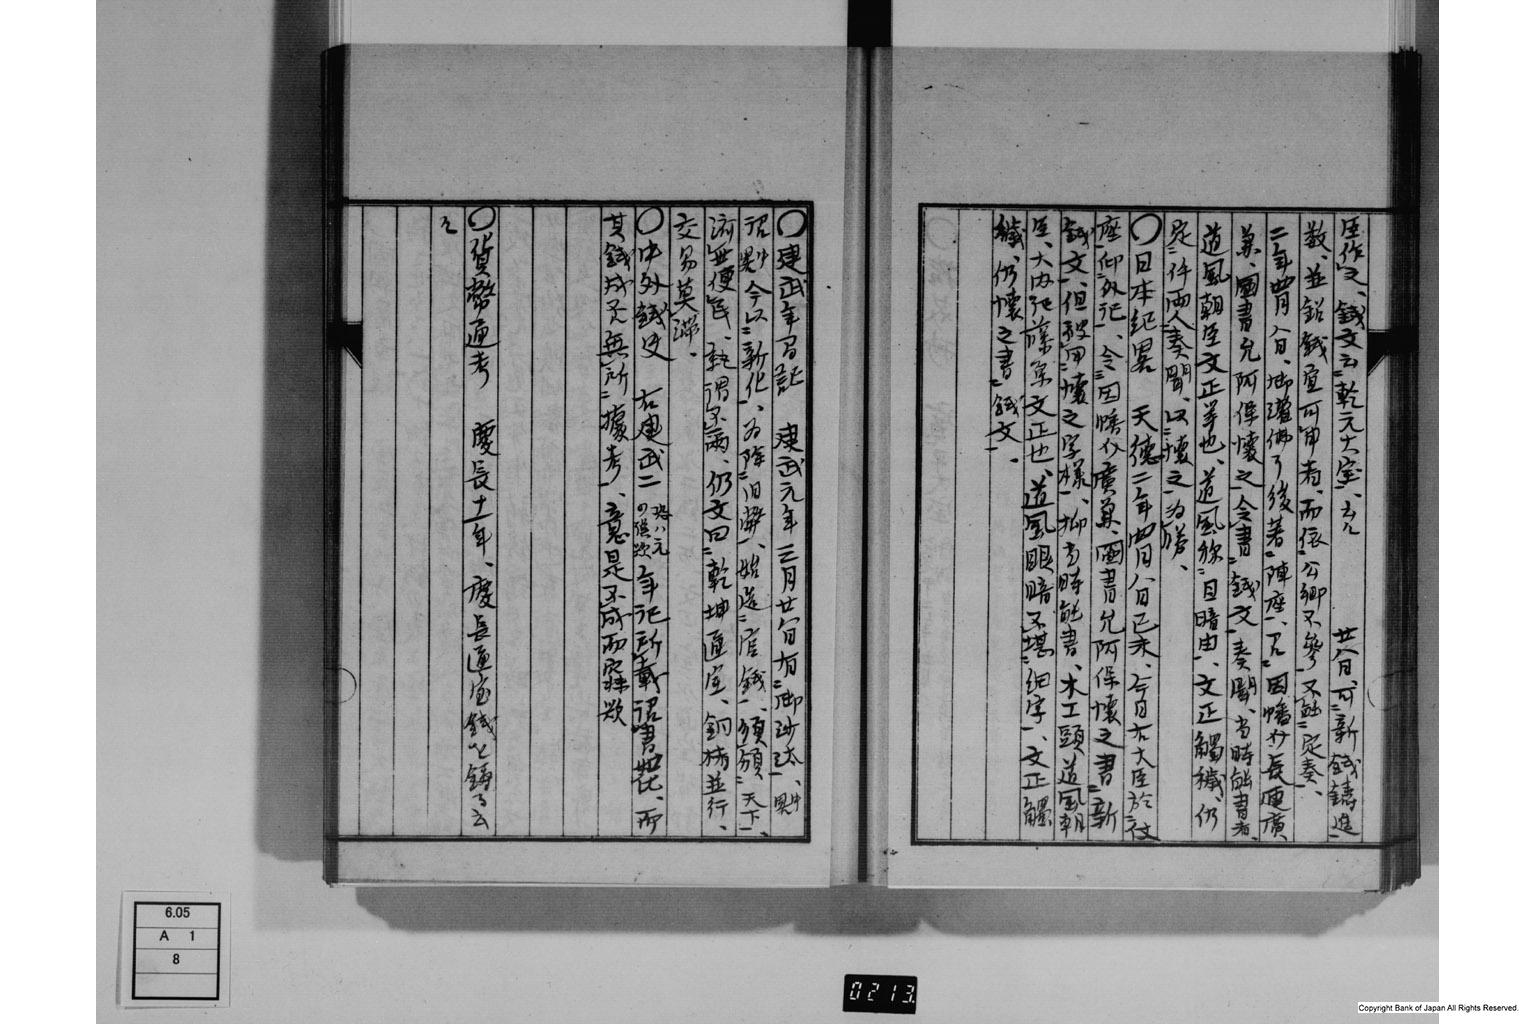 臣作文、銭文云乾元大宝、云々 廿八日、可新銭鋳進
数、並鉛銭宜可用者、而依公卿不参、不能定奏、
二年四月八日、御灌佛了後著陣座、召因幡介長連廣
並、圖書允阿保懐之令書銭文奏聞、当時能書者、
道風朝臣文正等也、道風称目暗由、文正觸穢、仍
件両人奏聞、以懐之為勝、
〇日本紀畧 天德二年四月八日己未、今日右大臣於
座仰外記、令因幡介廣並、圖書允阿保懐之書新
銭文、但被用懐之字様、抑当時能書、木工頭道風朝
臣、大内記藤原文正也、道風眼暗不堪細字、文正觸
穢、仍懐之書銭文、
〇建武年間記 建武元年三月廿八日有御沙汰、
詔 今以新化、為除旧弊、始造官銭、須頒天下、
流無便民、孰謂不両、仍文曰乾坤通宝、銅楮並行、
交易莫滞、
〇中外銭史 右建武二 恐ハ元ノ誤歟 年記所載詔書、而
其銭成否無所據考、意是不成而寝歟
〇貨幣通考 慶長十一年、慶長通宝銭ヲ鋳ル云
々
6.05
A 1
8
0213.
Copyright Bank of Japan All Rights Reserved.